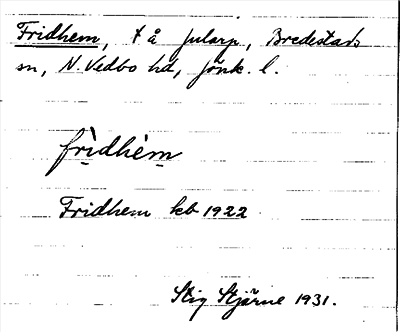 Fridhem, t å Jularp, Bredestads
sn, N. Vedbo hd, Jönk. l.
frìdhèm
Fridhem kb 1922
Stig Stjärne 1931.